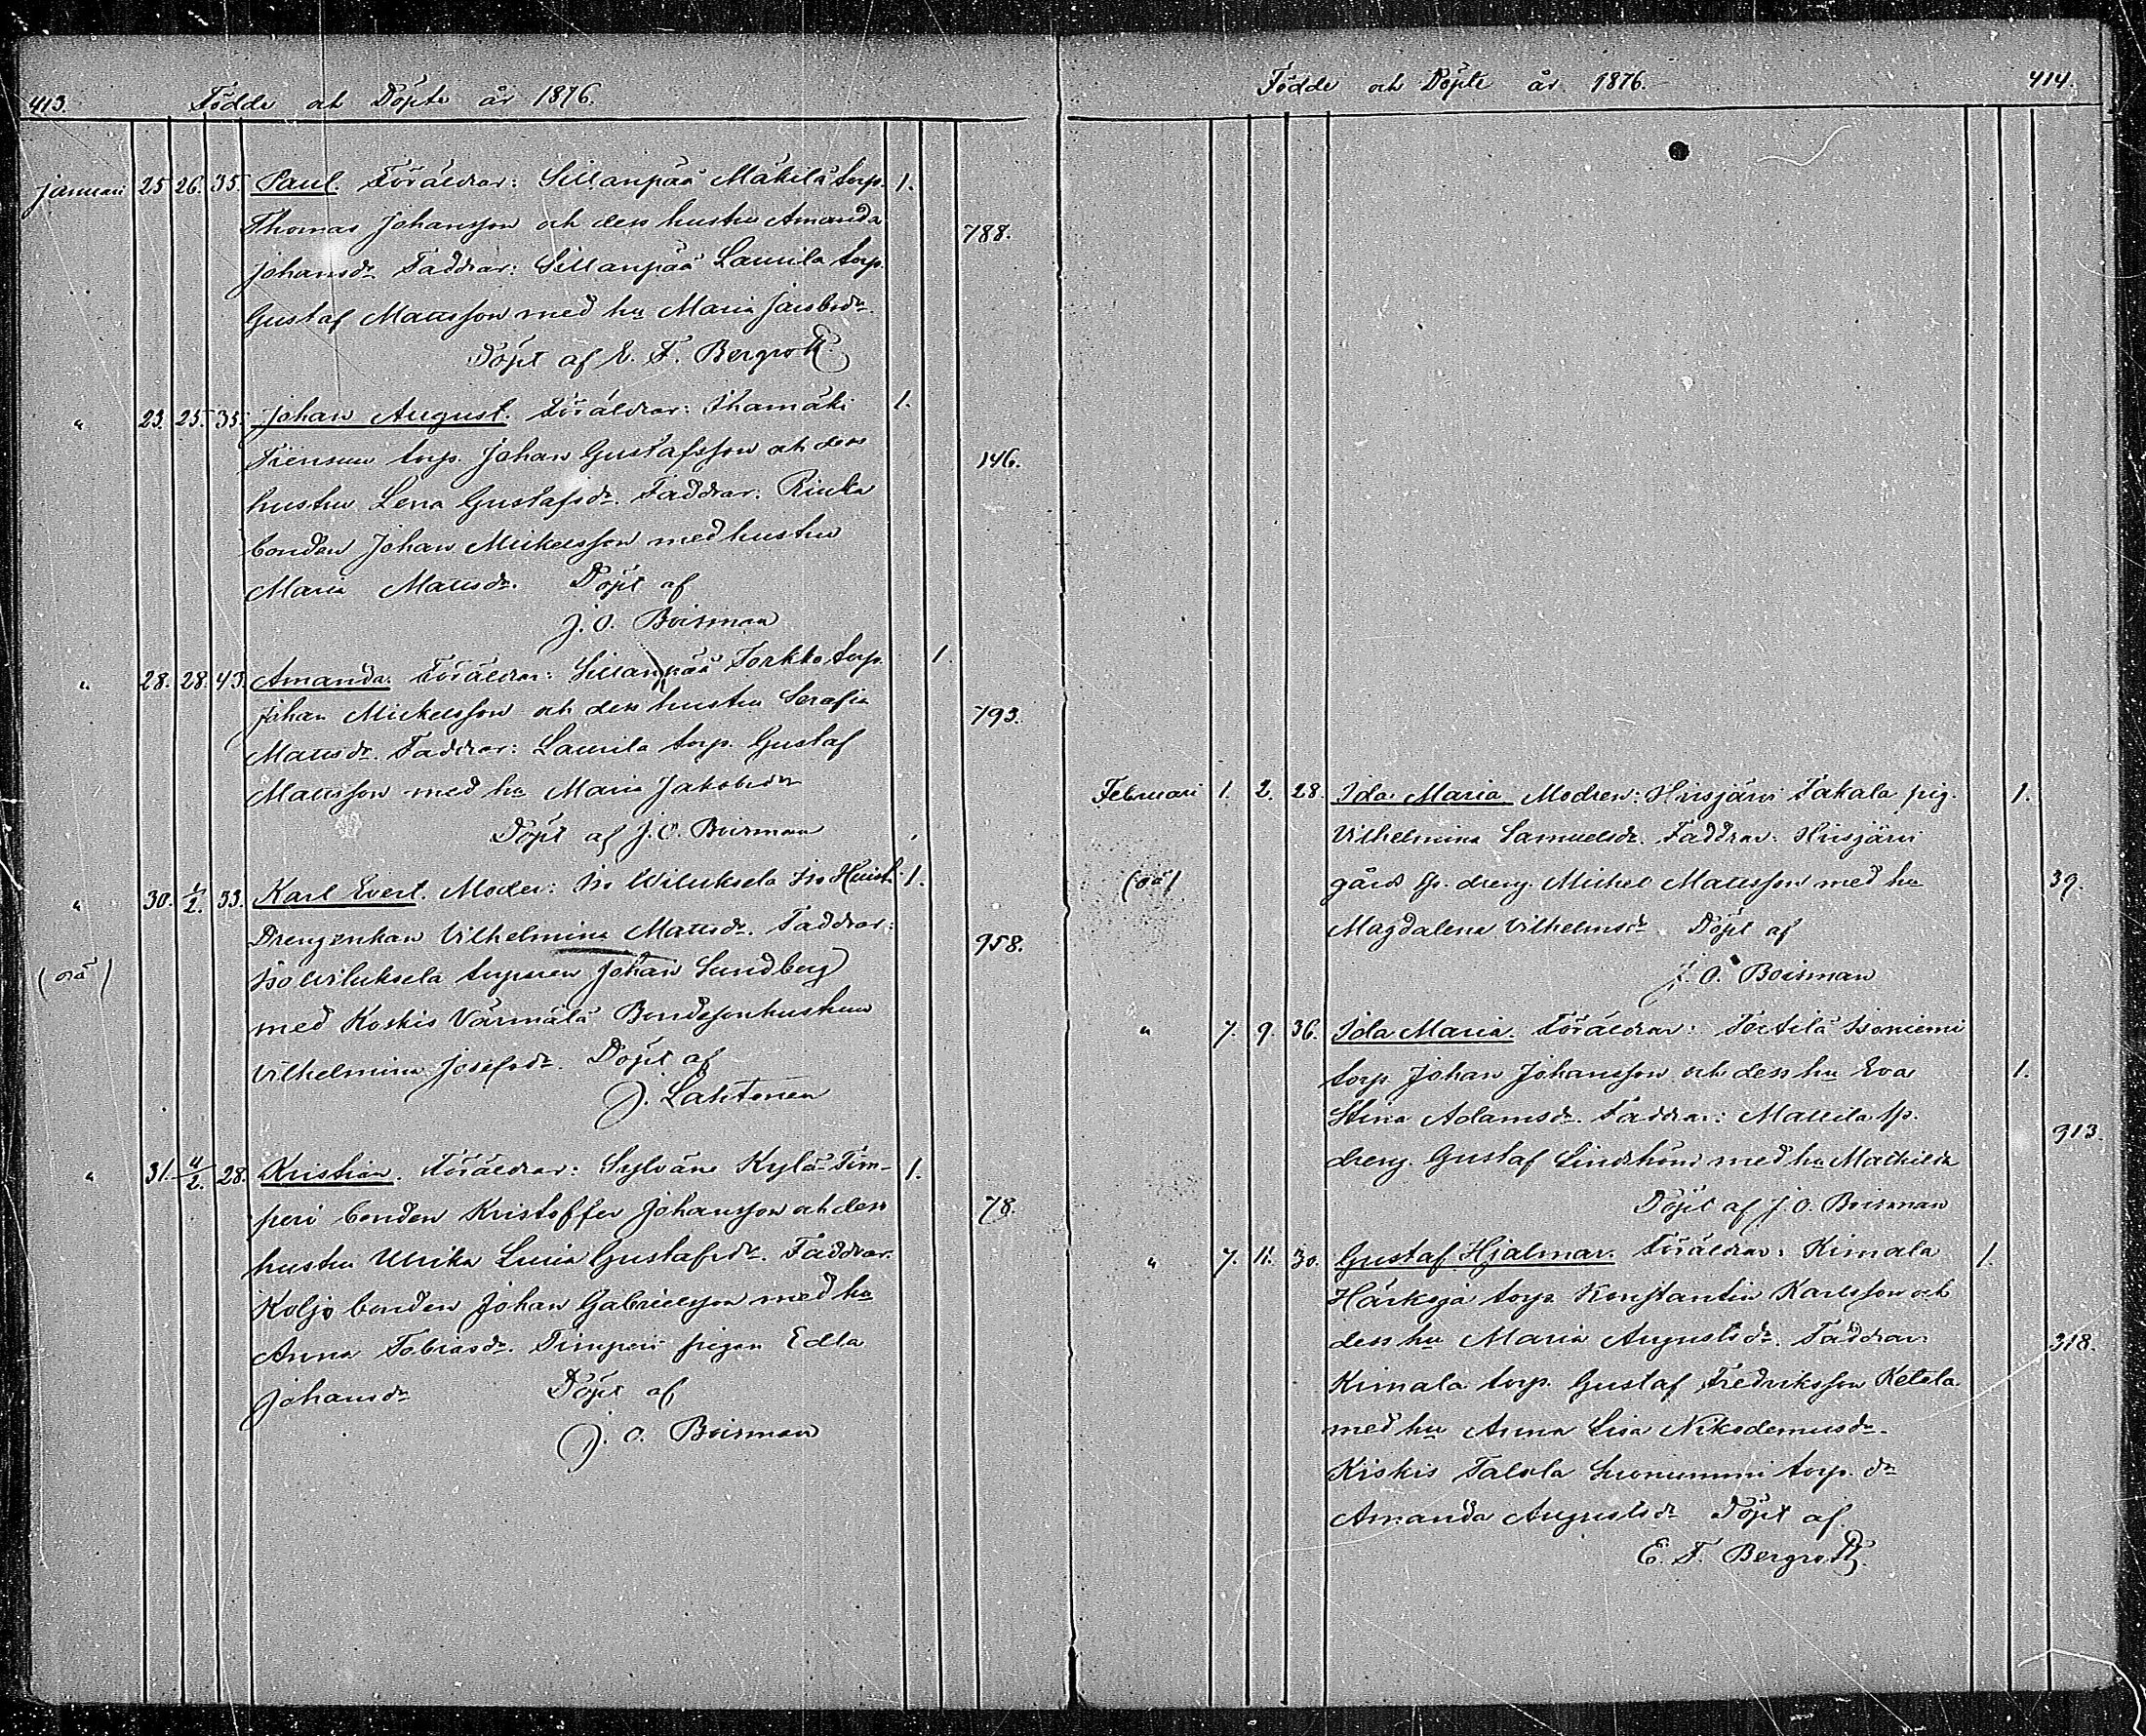 413. Födde och Döpte år 1876.
Januari 25 26. 35. Paul. Föräldrar: Sillanpää Mäkilä torp. 1.
Thomas Johansson och dess hustru Amanda
788.
Johansdr. Faddrar: Sillanpää Laurila torp.
Gustaf Mattsson med hu Maria Jacobsdr.
Döpt af E. F. Bergroth.
" 23. 25. 35. Johan August. Föräldrar: Ihamäki 1.
torp. Johan Gustafsson och dess
146.
hustru Lena Gustafsdr. Faddrar:
bonden Johan Mickelsson med hustru
Maria Mattsdr. Döpt af
J. O. Boisman
" 28. 28. 43. Amanda. Föräldrar: Sillanpää Torkko torp. 1.
Johan Mickelsson och dess hustru Serafia
793.
Mattsdr. Faddrar: Laurila torp. Gustaf
Mattsson med hu Maria Jakobsdr
Döpt af J. O. Boisman
" 30. 1/2. 33. Karl Evert. Moder: Iso Wiluksela Iso 1.
Drengenkan Vilhelmina Mattsdr. Faddrar:
958.
(oä) Iso Wiluksela torparen Johan Sundberg
med Koskis Värmälä Bondesonhustrun
Vilhelmina Josefsdr. Döpt af
J. Lahtonen
" 31. 11/2. 28. Kristian. Föräldrar: Sylvänä Kylä-Tim- 1.
peri bonden Kristoffer Johansson och dess
78.
hustru Ulrika Lovisa Gustafsdr. Faddrar.
Koljo bonden Johan Gabrielsson med hu
Anna Tobiasdr. Timperi pigan Edla
Johansdr Döpt af
J. O. Boisman
Födde och Döpte år 1876. 414.
Februari 1. 2. 28. Ida Maria Modren: Hirsjärvi Takala pig. 1.
Vilhelmina Samuelsdr. Faddrar: Hirsjärvi
(oä) gård sp. dreng. Michel Mattsson med hu 39.
Magdalena Vilhelmsdr Döpt af
J. O. Boisman
" 7. 9. 36. Ida Maria. Föräldrar: Terttilä Isoniemi
torp. Johan Johansson och dess hu Eva 1.
Stina Adamsdr. Faddrar: Mattila sp.
913.
dreng. Gustaf Lindström med hu Mathilda
Döpt af J. O. Boisman
" 7. 11. 30. Gustaf Hjalmar. Föräldrar: Kimala 1.
Härkoja torp. Konstantin Karlsson och
dess hu Maria Augustsdr. Faddrar:
318.
Kimala torp. Gustaf Fredriksson Ketola
med hu Anna Lisa Nikodemusdr.
Kiskis torp. dr
Amanda Augustsdr Döpt af
E. F. Bergroth.